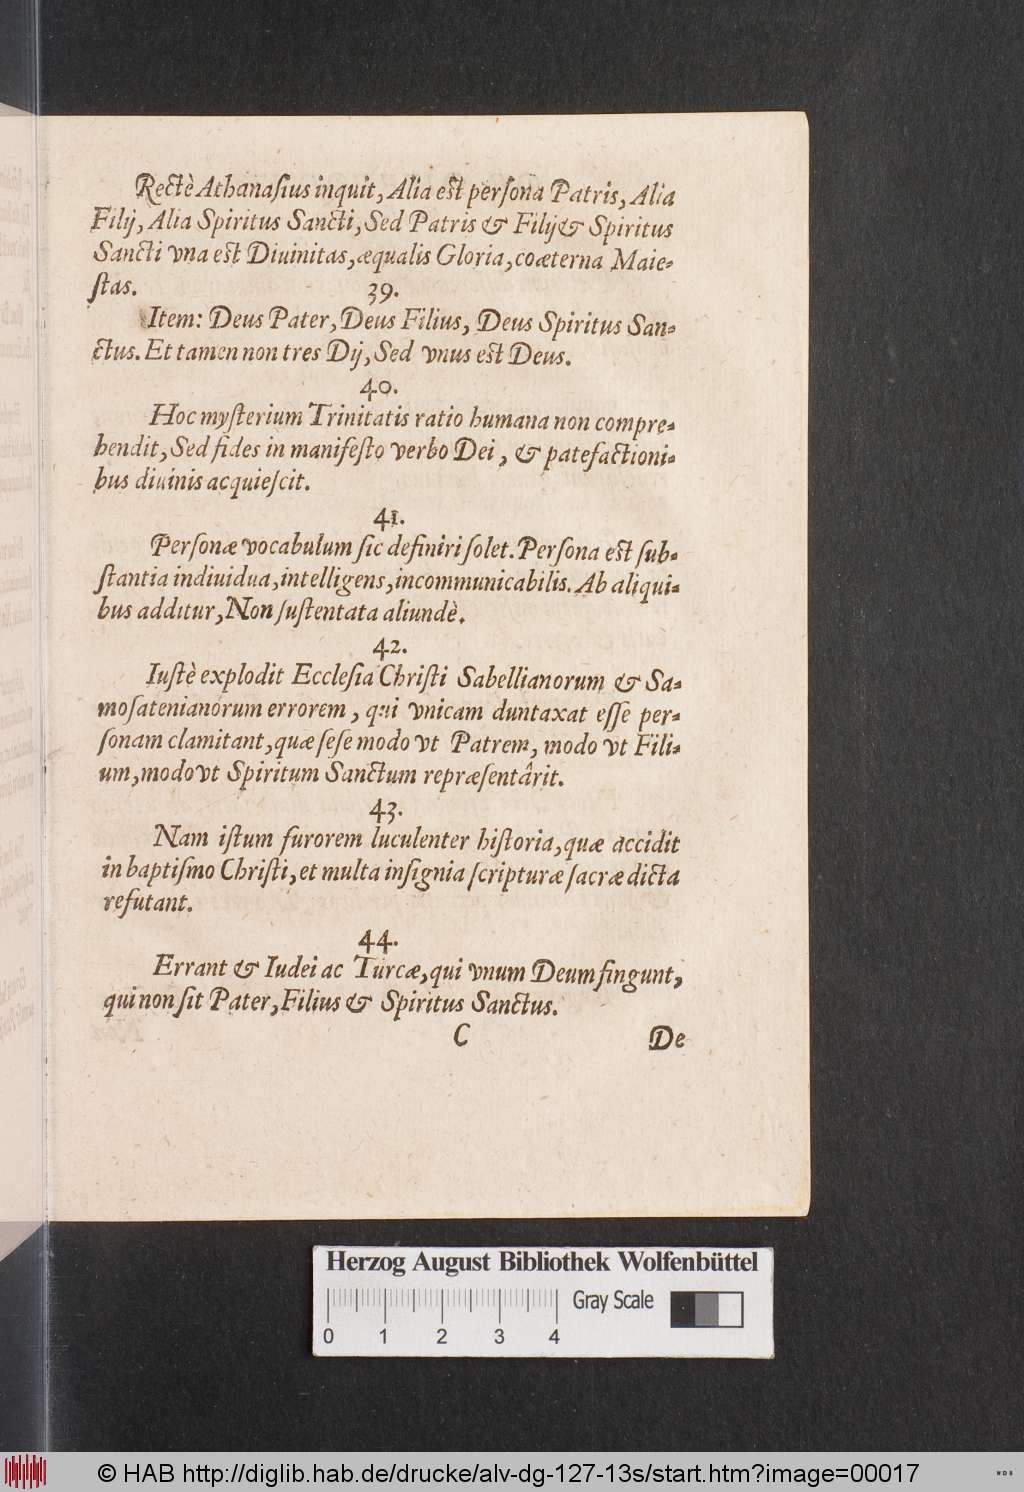 Rectè Athanaſius inquit, Alia eſt perſona Patris, Alia
Filij, Alia Spiritus Sancti, Sed Patris & Filij & Spiritus
Sancti vna eſt Diuinitas, æqualis Gloria, coæterna Maie-
ſtas.
39.
Item: Deus Pater, Deus Filius, Deus Spiritus San-
ctus. Et tamen non tres Dij, Sed vnus eſt Deus.
40.
Hoc myſterium Trinitatis ratio humana non compre-
hendit, Sed fides in manifeſto verbo Dei, & patefactioni-
bus diuinis acquieſcit.
41.
Perſonæ vocabulum ſic definiri ſolet. Perſona eſt ſub-
ſtantia indiuidua, intelligens, incommunicabilis. Ab aliqui-
bus additur, Non ſuſtentata aliundè.
42.
Iuſtè explodit Eccleſia Chriſti Sabellianorum & Sa-
moſatenianorum errorem, qui vnicam duntaxat eſſe per-
ſonam clamitant, quæ ſeſe modo vt Patrem, modo vt Fili-
um, modo vt Spiritum Sanctum repræſentârit.
43.
Nam iſtum furorem luculenter hiſtoria, quæ accidit
in baptiſmo Chriſti, et multa inſignia ſcripturæ ſacræ dicta
refutant.
44.
Errant & Iudei ac Turcæ, qui vnum Deum fingunt,
qui non ſit Pater, Filius & Spiritus Sanctus.
C De
Herzog August Bibliothek Wolfenbüttel
Gray Scale
0 1 2 3 4
© HAB http://diglib.hab.de/drucke/alv-dg-127-13s/start.htm?image=00017